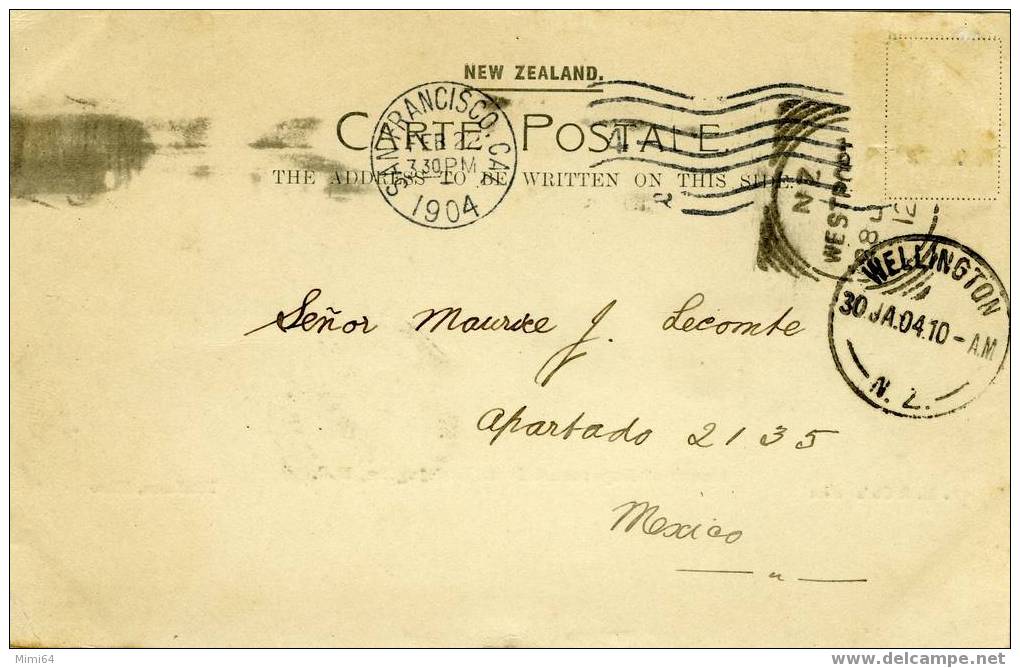 NEW ZEALAND.
CARTE POSTALE.
THE ADDRESS TO BE WRITTEN ON THIS SIDE.
SAN FRANCISCO, CAL.
FEB 22
3 30 PM
1904
WESTPORT
NZ
WELLINGTON
30.JA.04.10-AM
N.Z.
Señor Maurice J. Lecomte
Apartado 2135
Mexico
Mimi64
www.delcampe.net